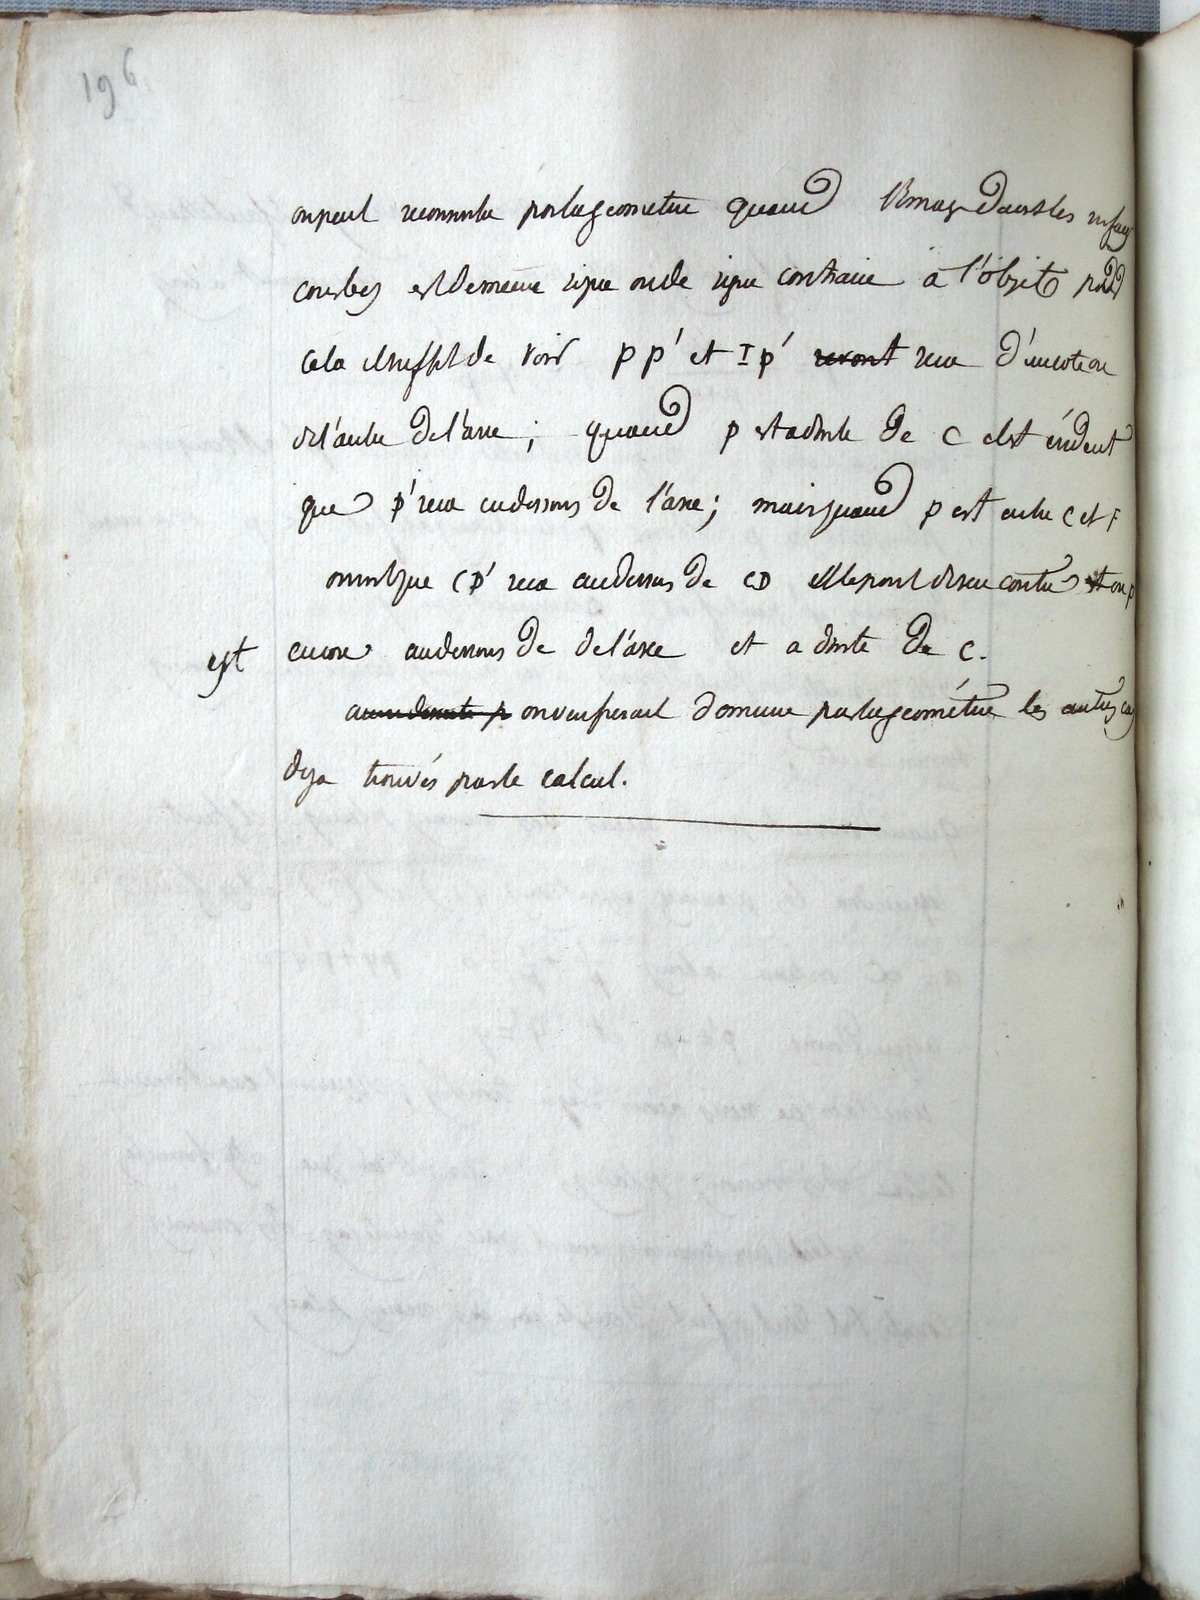 196
on peut reconnaitre par la geometrie quand l'image dans les
courbes est de meme signe ou de signe contraire à l'objet pour
cela il suffit de voir pp' et Ip' seront sera d'un coté ou
de l'autre de l'axe ; quand p est a droite de C il est évident
que p' sera au dessous de l'axe ; mais quand p est entre C et F
on voit que Cp' sera au dessus de CD elle peut
est encore au dessous de de l'axe et a droite de C.
on verifierait de meme par la géométrie les autres cas
deja trouvés par le calcul.